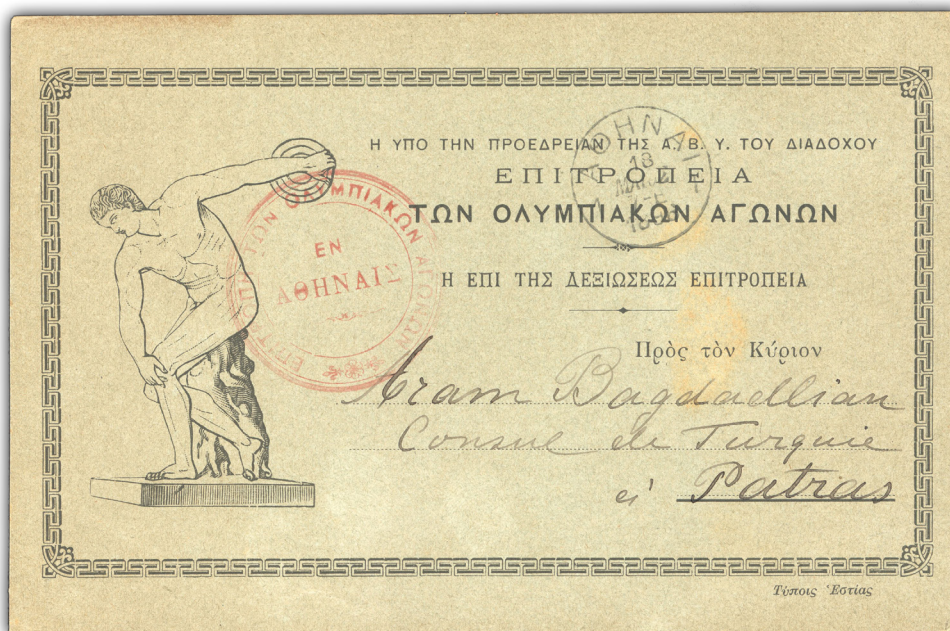 Η ΥΠΟ ΤΗΝ ΠΡΟΕΔΡΕΙΑΝ ΤΗΣ Α. Β. Υ. ΤΟΥ ΔΙΑΔΟΧΟΥ
ΕΠΙΤΡΟΠΕΙΑ
ΤΩΝ ΟΛΥΜΠΙΑΚΩΝ ΑΓΩΝΩΝ
Η ΕΠΙ ΤΗΣ ΔΕΞΙΩΣΕΩΣ ΕΠΙΤΡΟΠΕΙΑ
Πρὸς τὸν Κύριον
Aram Bagdadlian
Consul de Turquie
Patras
Τύποις Ἑστίας
ΕΠΙΤΡΟΠΗ ΤΩΝ ΟΛΥΜΠΙΑΚΩΝ ΑΓΩΝΩΝ
ΕΝ
ΑΘΗΝΑΙΣ
ΑΘΗΝΑΙ
18